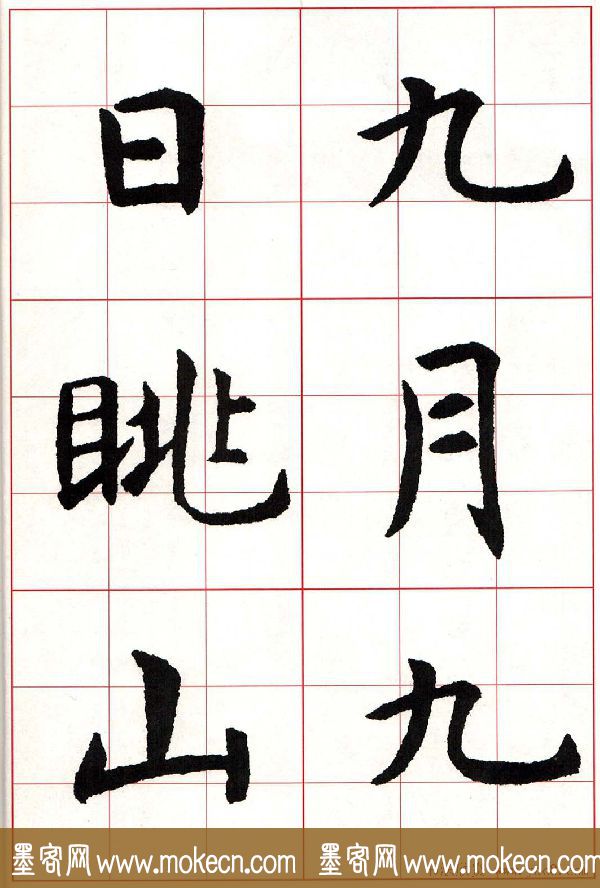 九月九
日眺山
墨客网 www.mokecn.com 墨客网 www.mokecn.com